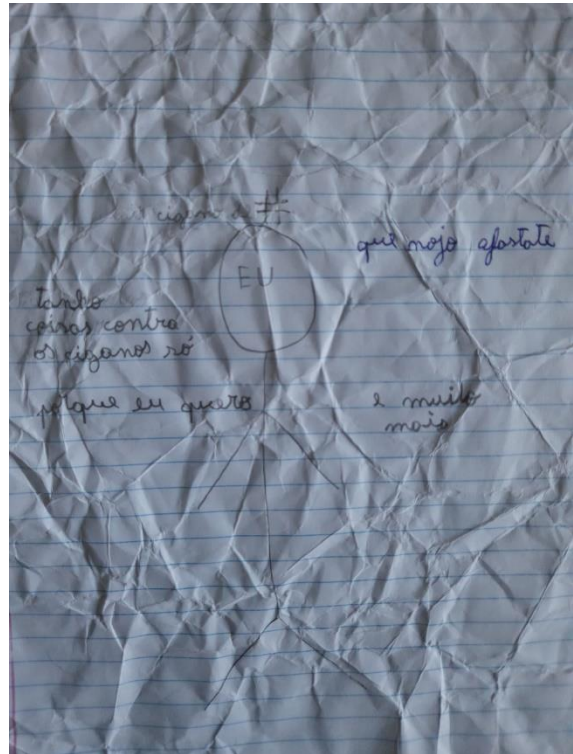 cigano #
EU
que nojo afastate
tanho
coisas contra
os ciganos só
porque eu quero
e muito
mais